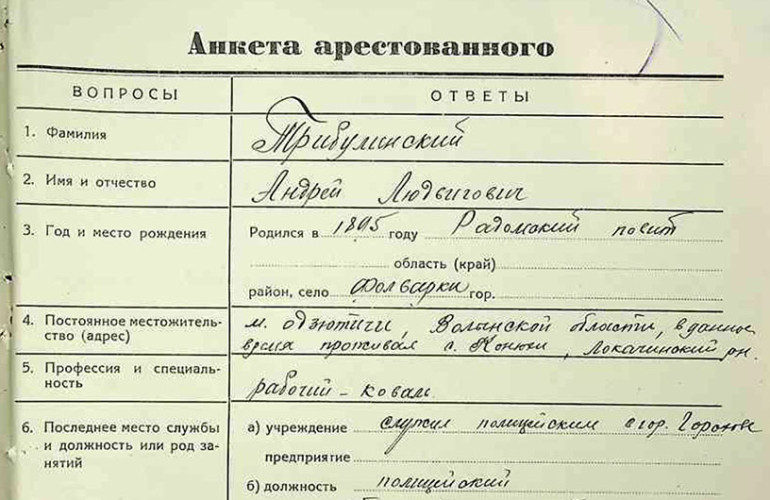 Анкета арестованного
ВОПРОСЫ ОТВЕТЫ
1. Фамилия Трибулинский
2. Имя и отчество Андрей Людвигович
3. Год и место рождения Родился в 1895 году Радомский повит
область (край)
район, село Фолварки гор.
4. Постоянное местожительство (адрес) м. Одзютичи, Волынской области, в данное
время проживал с. Конюхи, Локачинский рн.
5. Профессия и специальность
рабочий - коваль
6. Последнее место службы и должность или род занятий а) учреждение служил полицейским в гор.
предприятие
б) должность полицейский